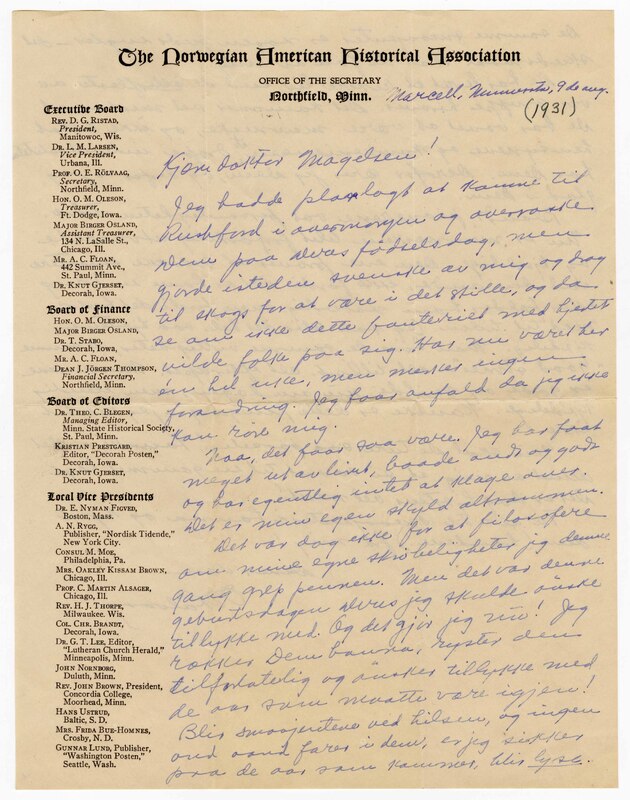 The Norwegian American Historical Association
OFFICE OF THE SECRETARY
Northfield, Minn.
Marcell, Minnesota, 9 de aug.
(1931)
Executive Board
REV. D. G. RISTAD,
President,
Manitowoc, Wis.
DR. L. M. LARSEN,
Vice President,
Urbana, Ill.
PROF. O. E. RÖLVAAG,
Secretary,
Northfield, Minn.
HON. O. M. OLESON,
Treasurer,
Ft. Dodge, Iowa.
MAJOR BIRGER OSLAND,
Assistant Treasurer,
134 N. LaSalle St.,
Chicago, Ill.
MR. A. C. FLOAN,
442 Summit Ave.,
St. Paul, Minn.
DR. KNUT GJERSET,
Decorah, Iowa.
Board of Finance
HON. O. M. OLESON,
MAJOR BIRGER OSLAND,
DR. T. STABO,
Decorah, Iowa.
MR. A. C. FLOAN,
DEAN J. JÖRGEN THOMPSON,
Financial Secretary,
Northfield, Minn.
Board of Editors
DR. THEO. C. BLEGEN,
Managing Editor,
Minn. State Historical Society,
St. Paul, Minn.
KRISTIAN PRESTGARD,
Editor, "Decorah Posten,"
Decorah, Iowa.
DR. KNUT GJERSET,
Decorah, Iowa.
Local Vice Presidents
DR. E. NYMAN FIGVED,
Boston, Mass.
A. N. RYGG,
Publisher, "Nordisk Tidende,"
New York City.
CONSUL M. MOE,
Philadelphia, Pa.
MRS. OAKLEY KISSAM BROWN,
Chicago, Ill.
PROF. C. MARTIN ALSAGER,
Chicago, Ill.
REV. H. J. THORPE,
Milwaukee. Wis.
COL. CHR. BRANDT,
Decorah, Iowa.
DR. G. T. LEE, Editor,
"Lutheran Church Herald,"
Minneapolis, Minn.
JOHN NORNBORG,
Duluth, Minn.
REV. JOHN BROWN, President,
Concordia College,
Moorhead, Minn.
HANS USTRUD,
Baltic, S. D.
MRS. FRIDA BUE-HOMNES,
Crosby, N. D.
GUNNAR LUND, Publisher,
"Washington Posten,"
Seattle, Wash.
Kjære doktor Magelsen!
Jeg hadde planlagt at komme til
Rushford i overmorgen og overraske
Dem paa deres födselsdag, men
gjorde isteden svenske av mig og drog
til skogs for at være i det stille, og da
se om ikke dette fanteriet med hjertet
vilde folke paa sig. Har nu været her
én hel uke, men merker ingen
forandring. Jeg faar anfald da jeg ikke
kan röre mig.
Naa, det faar saa være. Jeg har faat
meget ut av livet, baade ondt og godt
og har egentlig intet at klage over.
Det er min egen skyld altsammen.
Det var dog ikke for at filosofere
om mine egne skröbeligheter jeg denne
gang grep pennen. Men det var denne
geburtsdagen deres jeg skulde önske
tillykke med. Og det gjör jeg nu! Jeg
rækker Dem haanda, ryster den
tilforlatelig og önsker tillykke med
de aar som maatte være igjen!
Blir ved hilsen, og ingen
ond aand farer i dem, er jeg sikker
paa de aar som kommer, blir lyse.